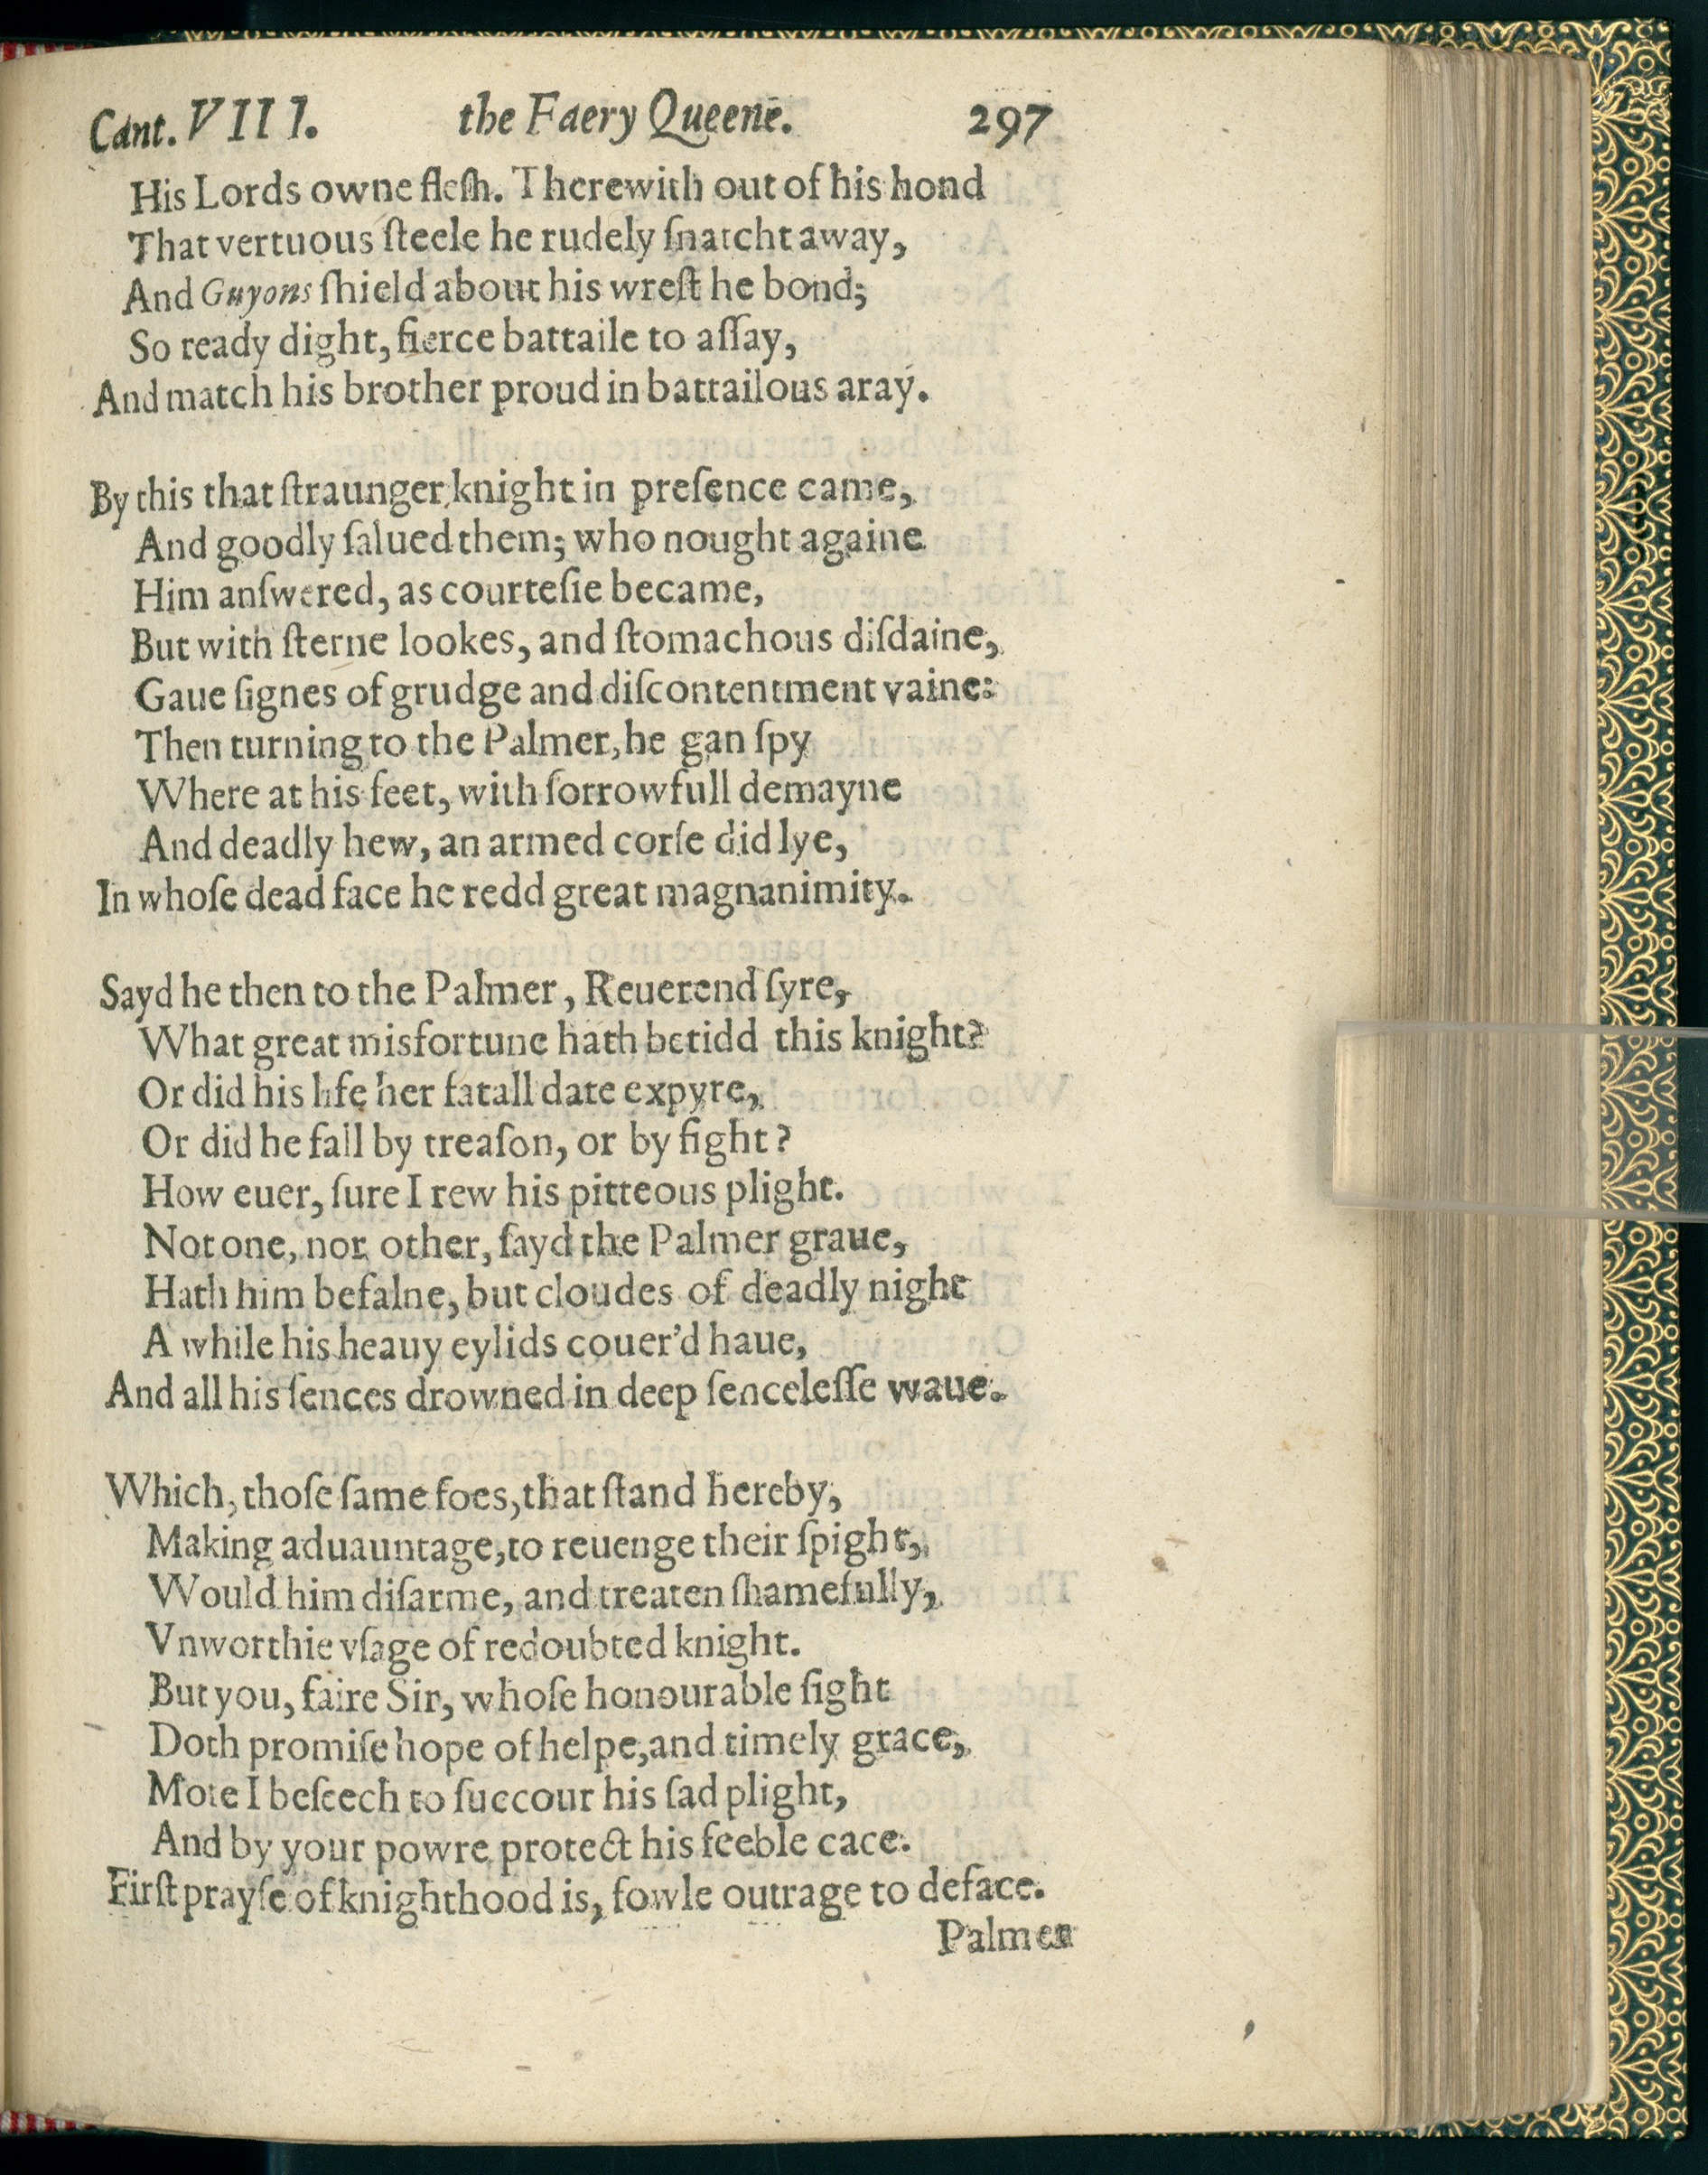 Cant. VIII. the Faery Queene. 297
His Lords owne fleſh. Therewith out of his hond
That vertuous ſteele he rudely ſnatcht away,
And Guyons ſhield about his wreſt he bond;
So ready dight, fierce battaile to aſſay,
And match his brother proud in battailous aray.
By this that ſtraunger knight in preſence came,
And goodly ſalued them; who nought againe
Him anſwered, as courteſie became,
But with ſterne lookes, and ſtomachous diſdaine,
Gaue ſignes of grudge and diſcontentment vaine:
Then turning to the Palmer, he gan ſpy
Where at his feet, with ſorrowfull demayne
And deadly hew, an armed corſe did lye,
In whoſe dead face he redd great magnanimity.
Sayd he then to the Palmer, Reuerend ſyre,
What great misfortune hath betidd this knight?
Or did his life her fatall date expyre,
Or did he fall by treaſon, or by fight?
How euer, ſure I rew his pitteous plight.
Not one, nor other, ſayd the Palmer graue,
Hath him befalne, but cloudes of deadly night
A while his heauy eylids couer'd haue,
And all his ſences drowned in deep ſenceleſſe waue.
Which, thoſe ſame foes, that ſtand hereby,
Making aduauntage, to reuenge their ſpight,
Would him diſarme, and treaten ſhamefully,
Vnworthie vſage of redoubted knight.
But you, faire Sir, whoſe honourable ſight
Doth promiſe hope of helpe, and timely grace,
Mote I beſeech to ſuccour his ſad plight,
And by your powre protect his feeble cace.
Firſt prayſe of knighthood is, fowle outrage to deface.
Palmer